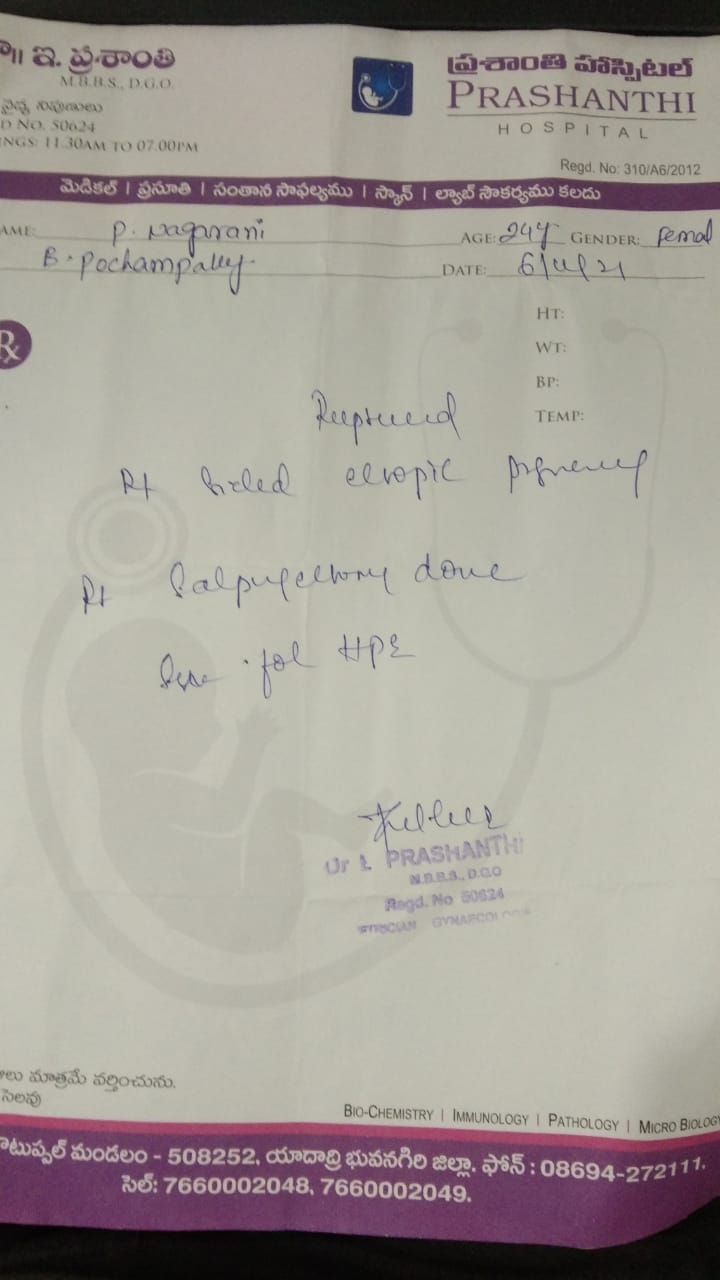 ఇ. ప్రశాంతి
M.B.B.S., D.G.O.
వైద్య నిపుణులు
D NO. 50624
NGS: 11.30AM TO 07.00PM
ప్రశాంతి హాస్పిటల్
PRASHANTHI
HOSPITAL
Regd. No: 310/A6/2012
మెడికల్ | ప్రసూతి | సంతాన సాఫల్యము | స్కాన్ | ల్యాబ్ సౌకర్యము కలదు
AME: P. Nagarani AGE: 24y GENDER: Femal
B. Pochampally. DATE:
HT:
WT:
BP:
TEMP:
Rx
Ruptured
Rt sided ectopic pregnancy
Rt Salpingectomy done
for HPE
PRASHANTHI
M.B.B.S., D.G.O
Regd. No 50624
మాత్రమే వర్తించును.
సెలవు
BIO-CHEMISTRY | IMMUNOLOGY | PATHOLOGY | MICRO BIOLOGY
మండలం - 508252, యాదాద్రి భువనగిరి జిల్లా. ఫోన్ : 08694-272111.
సెల్: 7660002048, 7660002049.